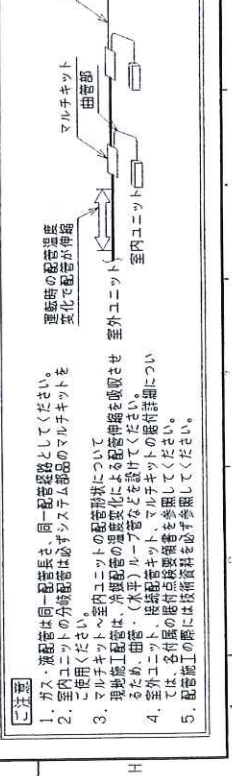 ご注意
1. ガス・液配管は同一配管長さ、同一配管経路としてください。
2. 室内ユニットの分岐配管は必ずシステム部品のマルチキットを
ご使用ください。
3. マルチキット～室内ユニットの配管形状について
現地施工配管は、冷媒配管の温度変化による配管伸縮を吸収させ
るため、曲管・(水平)ループ管などを設けてください。
4. 室外ユニット、接続配管キット、マルチキットの据付詳細につい
ては、各付属の据付点検要領書を参照してください。
5. 配管施工の際には技術資料を必ず参照してください。
運転時の配管温度
変化で配管が伸縮
室外ユニット
マルチキット
曲管部
室内ユニット
H